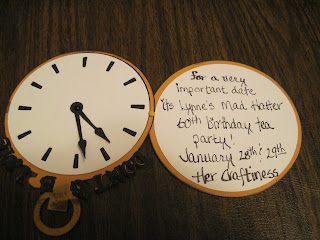 for a very
important date
its Lynne's Mad Hatter
60th Birthday tea
party!
January 28th & 29th
Her Craftiness